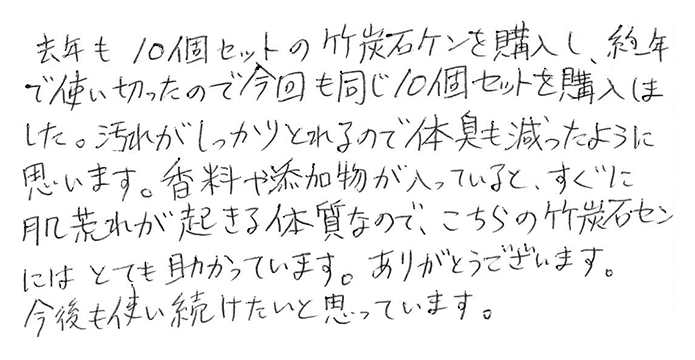 去年も10個セットの竹炭石ケンを購入し、約一年
で使い切ったので今回も同じ10個セットを購入しま
した。汚れがしっかりとれるので体臭も減ったように
思います。香料や添加物が入っていると、すぐに
肌荒れが起きる体質なので、こちらの竹炭石セン
にはとても助かっています。ありがとうございます。
今後も使い続けたいと思っています。